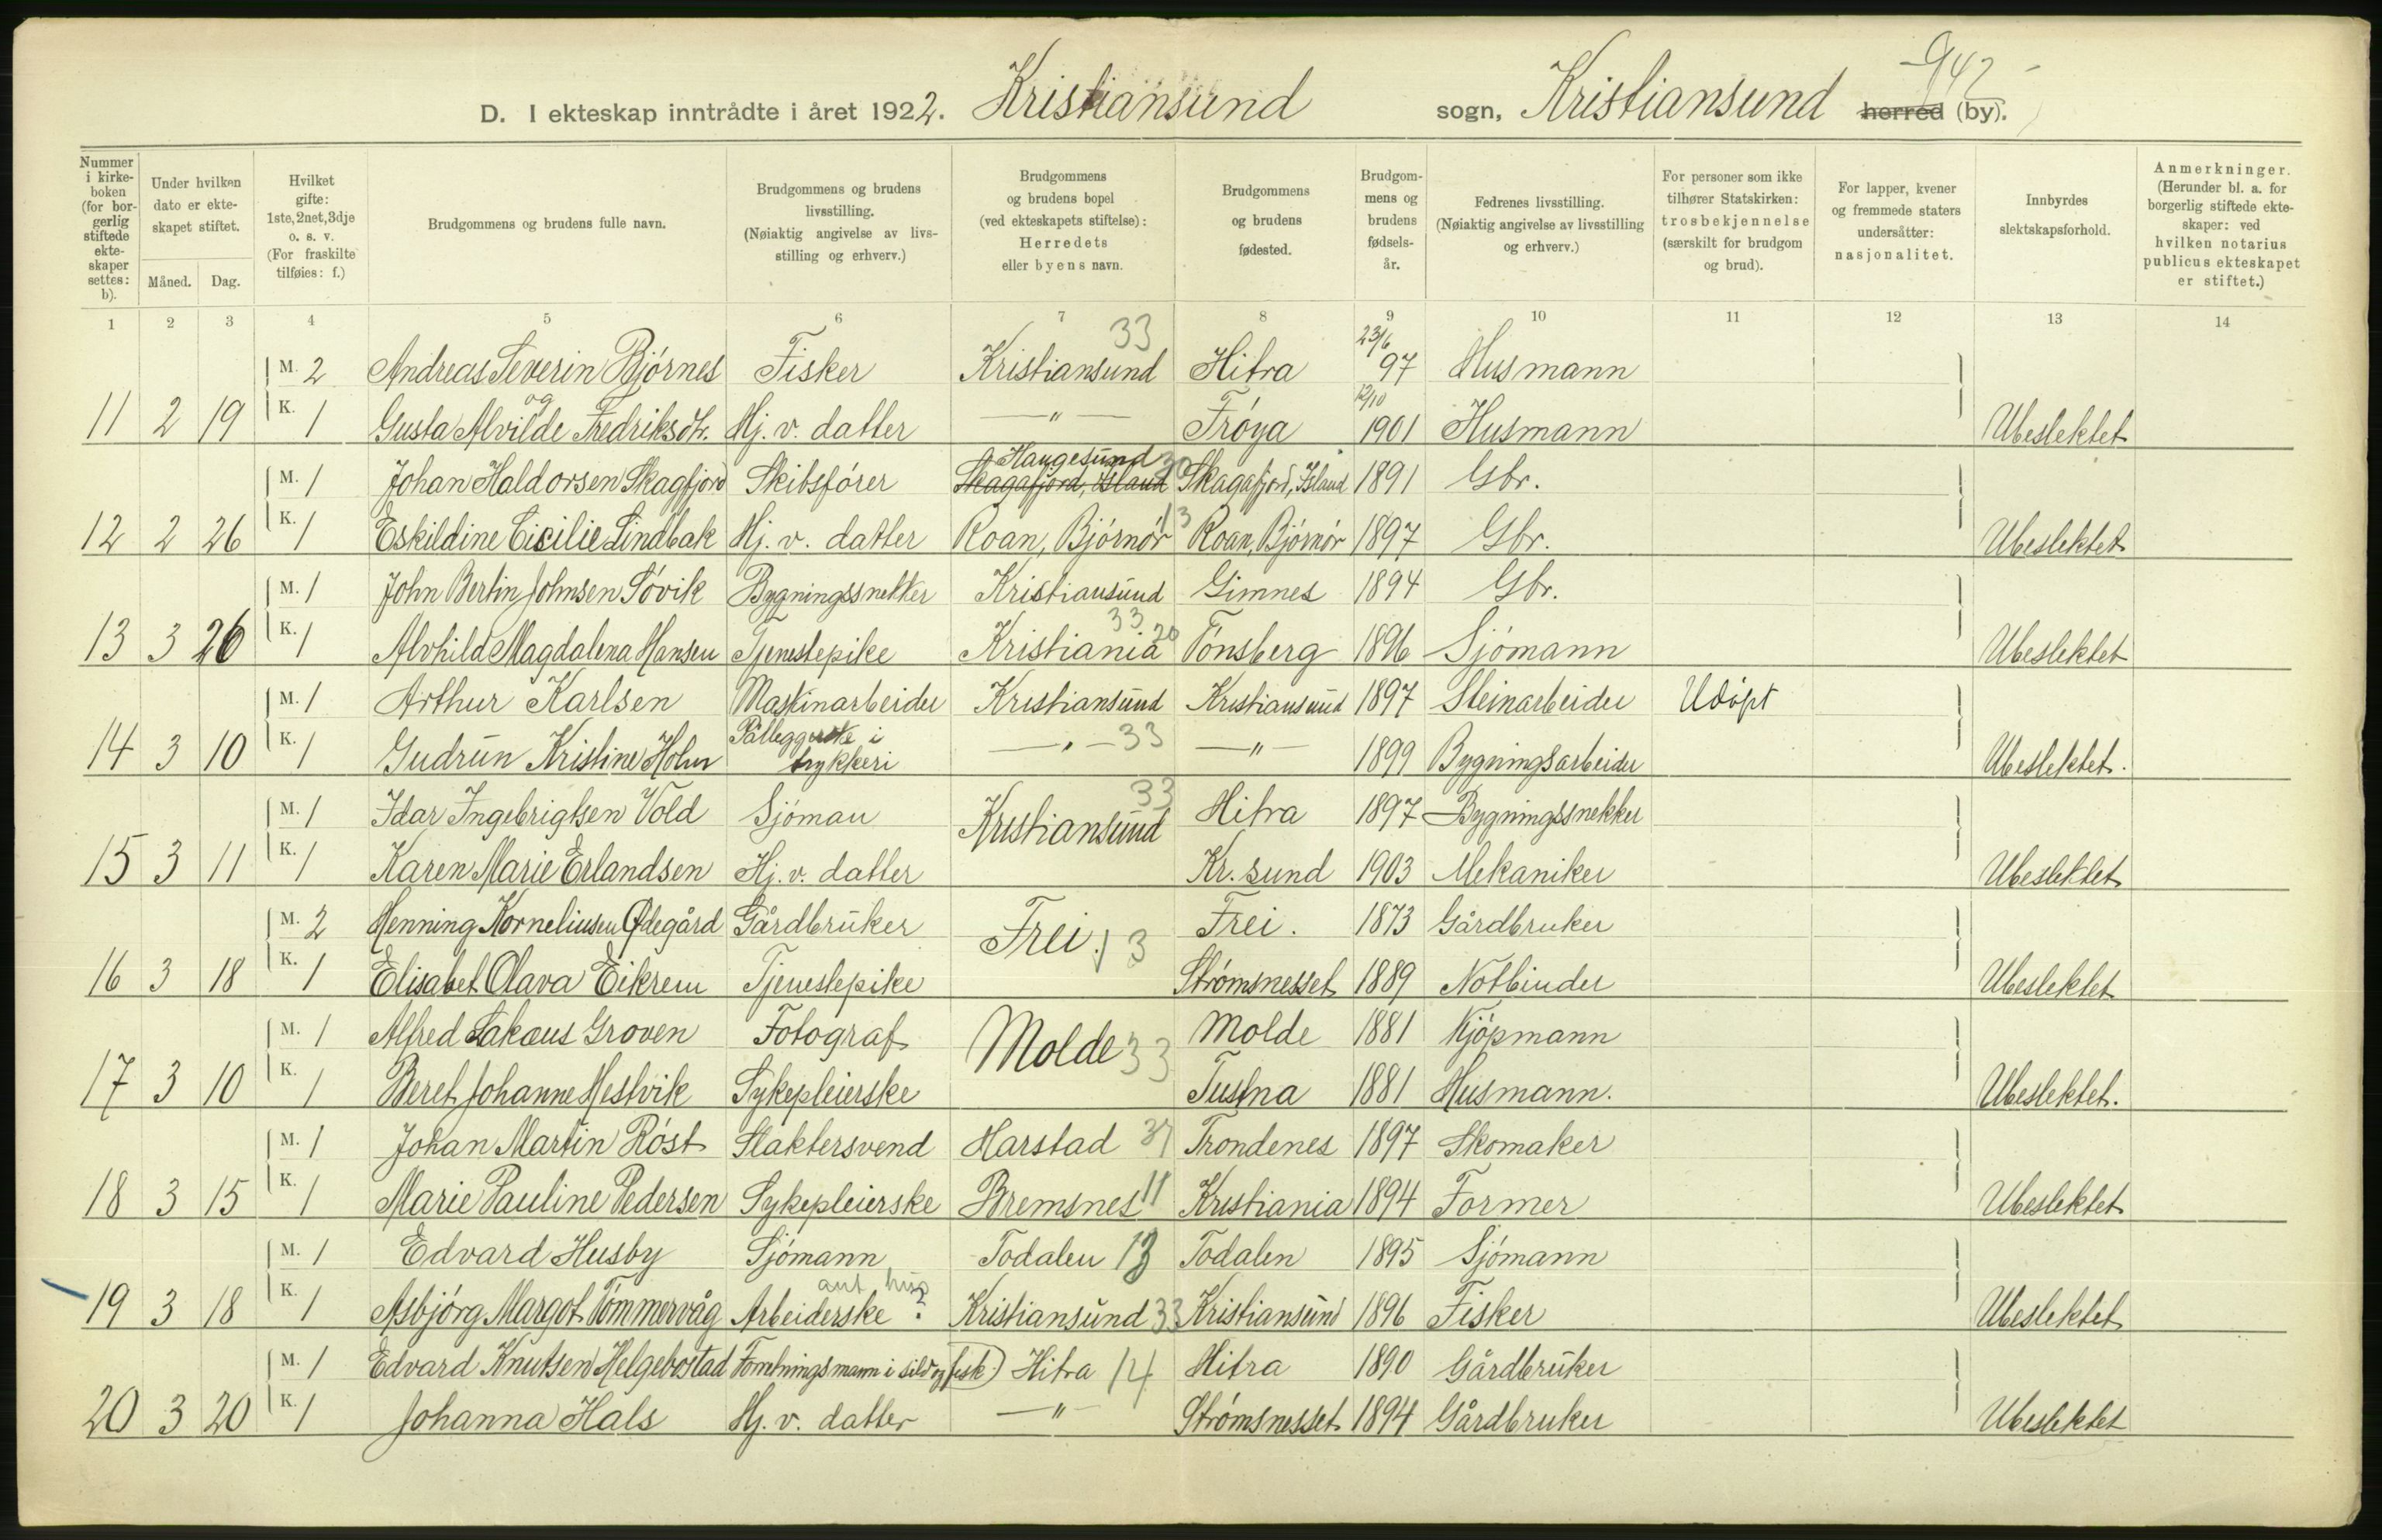 -942-
D. I ekteskap inntrådte i året 1922. Kristiansund sogn, Kristiansund herred (by).
Nummer i kirkeboken (for borgerlig stiftede ekteskaper settes: b).
Under hvilken dato er ekteskapet stiftet.
Måned. Dag.
Hvilket gifte: 1ste, 2net, 3dje o. s. v. (For fraskilte tilføies: f.)
Brudgommens og brudens fulle navn.
Brudgommens og brudens livsstilling. (Nøiaktig angivelse av livsstilling og erhverv.)
Brudgommens og brudens bopel (ved ekteskapets stiftelse): Herredets eller byens navn.
Brudgommens og brudens fødested.
Brudgommens og brudens fødselsår.
Fedrenes livsstilling. (Nøiaktig angivelse av livsstilling og erhverv.)
For personer som ikke tilhører Statskirken: trosbekjennelse (særskilt for brudgom og brud).
For lapper, kvener og fremmede staters undersåtter: nasjonalitet.
Innbyrdes slektskapsforhold.
Anmerkninger. (Herunder bl. a. for borgerlig stiftede ekteskaper: ved hvilken notarius publicus ekteskapet er stiftet.)
1 2 3 4 5 6 7 8 9 10 11 12 13 14
M. 2 Andreas Severin Bjórnes Fisker Kristiansund 33 Hitra 23/6 97 Husmann
og
11 2 19 K. 1 Gusta Alvilde Fredriksdtr. Hj. v. datter —"— Fróya 12/10 1901 Husmann Ubeslektet
Haugesund 30
M. 1 Johan Haldorsen Skagfjord Skibsfórer Skagafjord, Island Skagafjord, Island 1891 Gbr.
12 2 26 K. 1 Eskildine Cicilie Lindbak Hj. v. datter Roan, Bjórnór 13 Roan, Bjórnór 1897 Gbr. Ubeslektet
M. 1 John Bertin Johnsen Sóvik Bygningssnekker Kristiansund 33 Gimnes 1894 Gbr.
13 3 26 K. 1 Alvhild Magdalena Hansen Tjenestepike Kristiania 20 Tónsberg 1896 Sjómann Ubeslektet
M. 1 Arthur Karlsen Maskinarbeider Kristiansund Kristiansund 1897 Steinarbeider Udópt
14 3 10 K. 1 Gudrun Kristine Holm Påleggerske i trykkeri —"— 33 —"— 1899 Bygningsarbeider Ubeslektet.
M. 1 Idar Ingebrigtsen Vold Sjóman Kristiansund 33 Hitra 1897 Bygningssnekker
15 3 11 K. 1 Karen Marie Erlandsen Hj. v. datter Kr. sund 1903 Mekaniker Ubeslektet
M. 2 Henning Korneliusen Ødegård Gårdbruker Frei. 13 Frei. 1873 Gårdbruker
16 3 18 K. 1 Elisabet Olava Eikrem Tjenestepike Strómsnesset 1889 Notbinder Ubeslektet
M. 1 Alfred Lakæus Groven Fotograf Molde 33 Molde 1881 Kjópmann
17 3 10 K. 1 Beret Johanne Hestvik Sykepleierske Tustna 1881 Husmann. Ubeslektet.
M. 1 Johan Martin Róst Slaktersvend Harstad 37 Trondenes 1897 Skomaker
18 3 15 K. 1 Marie Pauline Pedersen Sykepleierske Bremsnes 11 Kristiania 1894 Former Ubeslektet
M. 1 Edvard Husby Sjómann Todalen 13 Todalen 1895 Sjómann
19 3 18 K. 1 Asbjórg Margot Tómmervåg Arbeiderske ? Kristiansund 33 Kristiansund 1896 Fisker Ubeslektet
M. 1 Edvard Knutsen Helgebostad Forretningsmann i sild og fisk) Hitra 14 Hitra 1890 Gårdbruker
20 3 20 K. 1 Johanna Hals Hj. v. datter —"— Strómsnesset 1894 Gårdbruker Ubeslektet